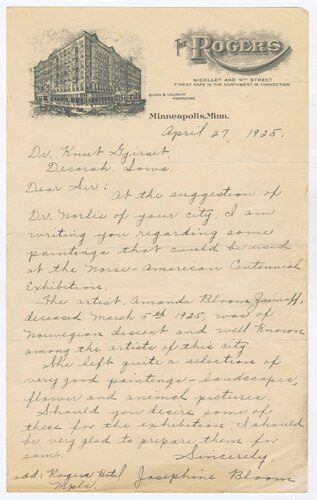 THE ROGERS
NICOLLET AND 4TH STREET
FINEST CAFE IN THE NORTHWEST IN CONNECTION
& VAUGHN
PROPRIETORS
Minneapolis, Minn.
April 27, 1925.
Dr. Knut Gjerset
Decorah, Iowa.
Dear Sir: At the suggestion of
Dr. Norlie of your city, I am
writing you regarding some
paintings that could be used
at the Norse-American Centennial
Exhibition.
The artist, Amanda Bloom
deceased March 5th 1925, was of
Norwegian descent and well known
among the artists of this city.
She left quite a selection of
very good paintings - landscapes,
flower and animal pictures.
Should you desire some of
these for the exhibition, I should
be very glad to prepare them for
same.
Sincerely
add: Rogers Hotel Josephine Bloom
Mpls.